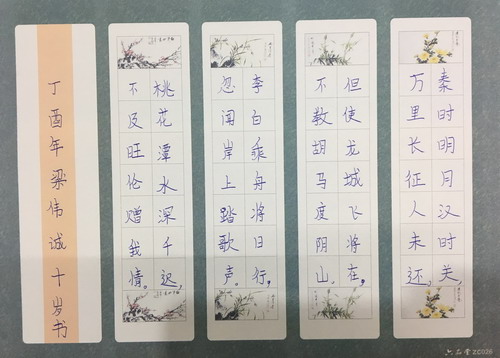 秦时明月汉时关，
万里长征人未还。
但使龙城飞将在，
不教胡马度阴山。
李白乘舟将日行，
忽闻岸上踏歌声。
桃花潭水深千迟，
不及旺伦赠我情。
丁酉年梁伟诚十岁书
六品堂